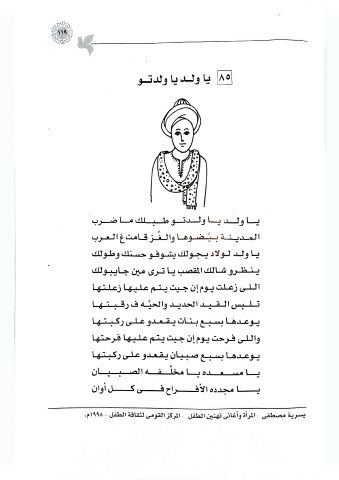 ١١٩
٨٥ يا ولد يا ولدتو
يا ولد يا ولدتو طبلك ما ضرب
المدينة بيّضوها والغُز قامت غ العرب
يا ولد لولاد يجولك يشوفو حسنك وطولك
ينظرو شالك المقصب يا ترى مين جايبولك
اللى زعلت يوم إن جيت يتم عليها زعلتها
تلبس القيد الحديد والحيّه ف رقبتها
يوعدها بسبع بنات يقعدو على ركبتها
واللى فرحت يوم إن جيت يتم عليها فرحتها
يوعدها بسبع صبيان يقعدو على ركبتها
يا مسعده يا مخلّفه الصبيان
يا مجدده الأفراح فى كل أوان
يسرية مصطفى - المرأة وأغانى تهنين الطفل - المركز القومى لثقافة الطفل - ١٩٩٨م.